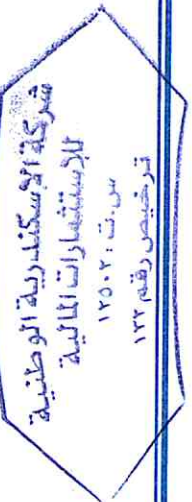 شركة الإسكندرية الوطنية
للإستثمارات المالية
س.ت : ١٢٥٠٢
ترخيص رقم ١٢٢